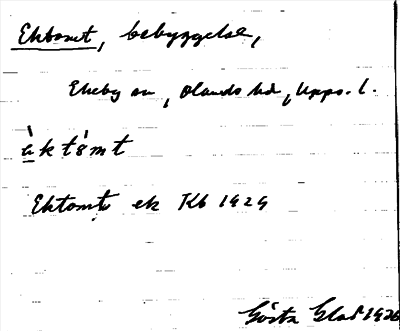 Ektomt, bebyggelse,
Ekeby sn, Olands hd, Upps. l.
àktómt
Ektomts ek Kb 1929
Gösta Glad 1926